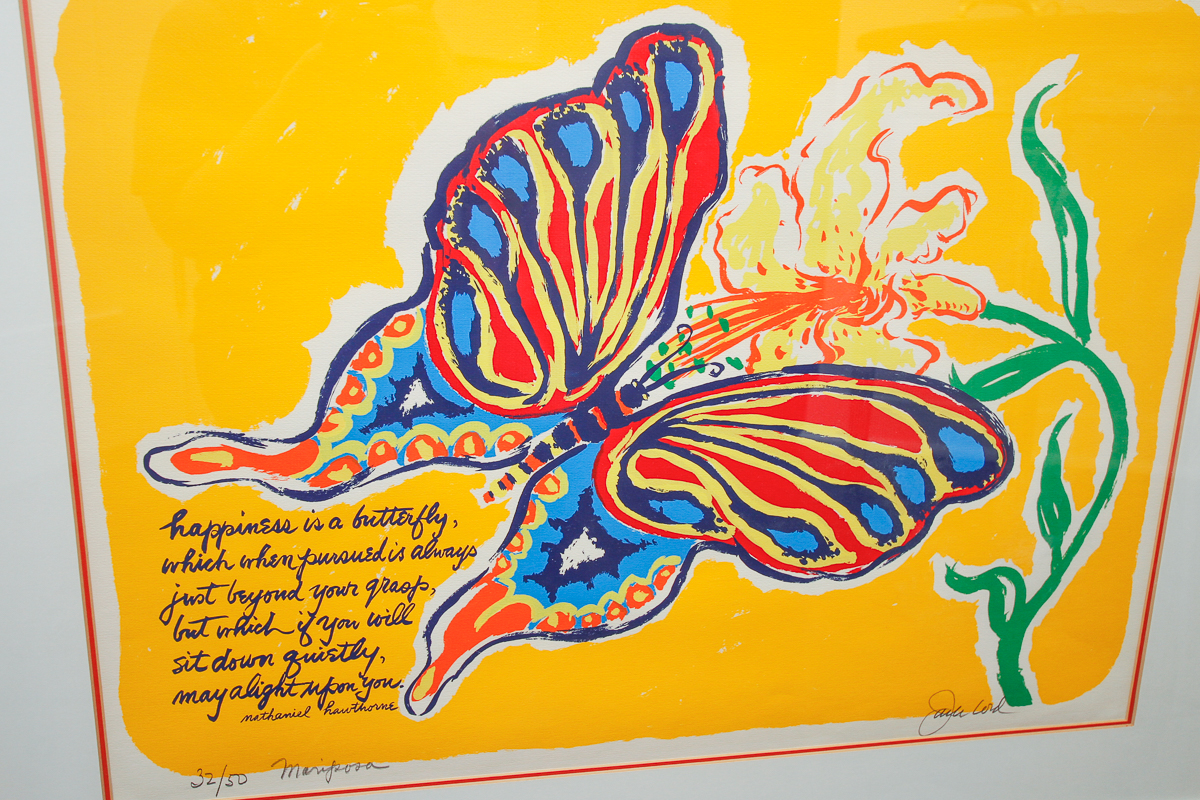 happiness is a butterfly,
which when pursued is always
just beyond your grasp,
but which if you will
sit down quietly,
may alight upon you.
nathaniel hawthorne
32/50 Mariposa
Lord